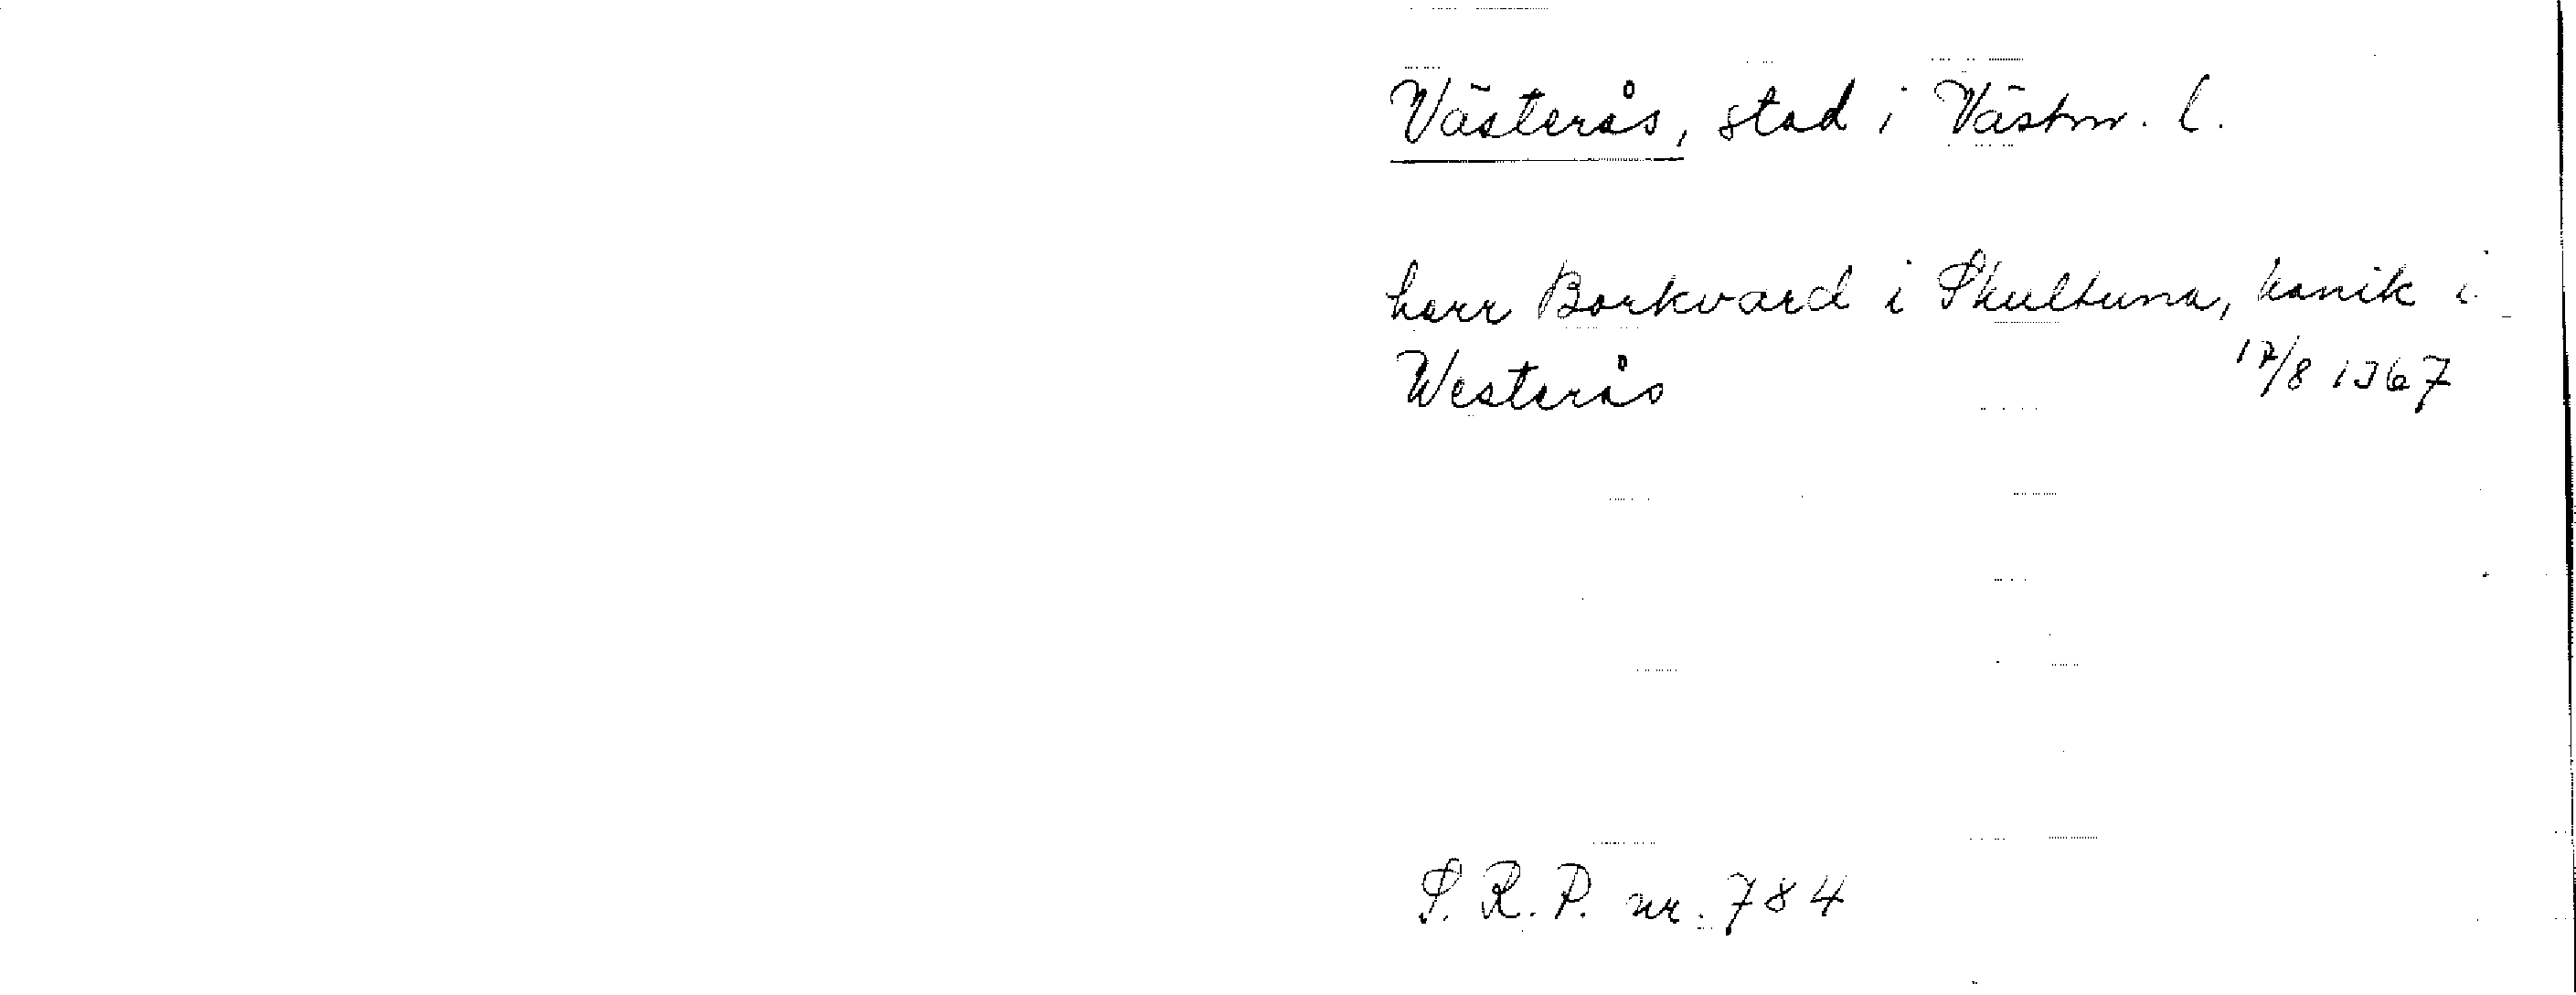 Västerås, stad i Västm. l.
herr Borkvard i Skultuna, kanik i
Westerås 17/8 1367
S. R. P. nr. 784